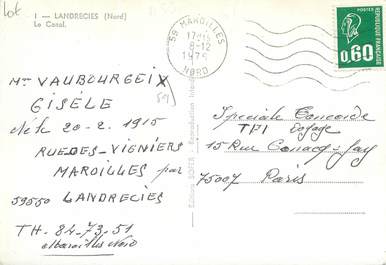 Lot
1 - LANDRECIES (Nord)
Le Canal.
59 MAROILLES
17H15
8-12
1975
NORD
POSTES
0,60
REPUBLIQUE FRANCAISE
Mme VAUBOURGEIX
GISÈLE
née le 20-2. 1915
RUE DES-VIGNIERS
MAROILLES par
59550 LANDRECIES
TH. 84-73.51
Maroilles Nord
Editions SOFER - Reproduction
Spéciale Concorde
TPI Voyage
15 Rue Conacq-Jay
75007 Paris